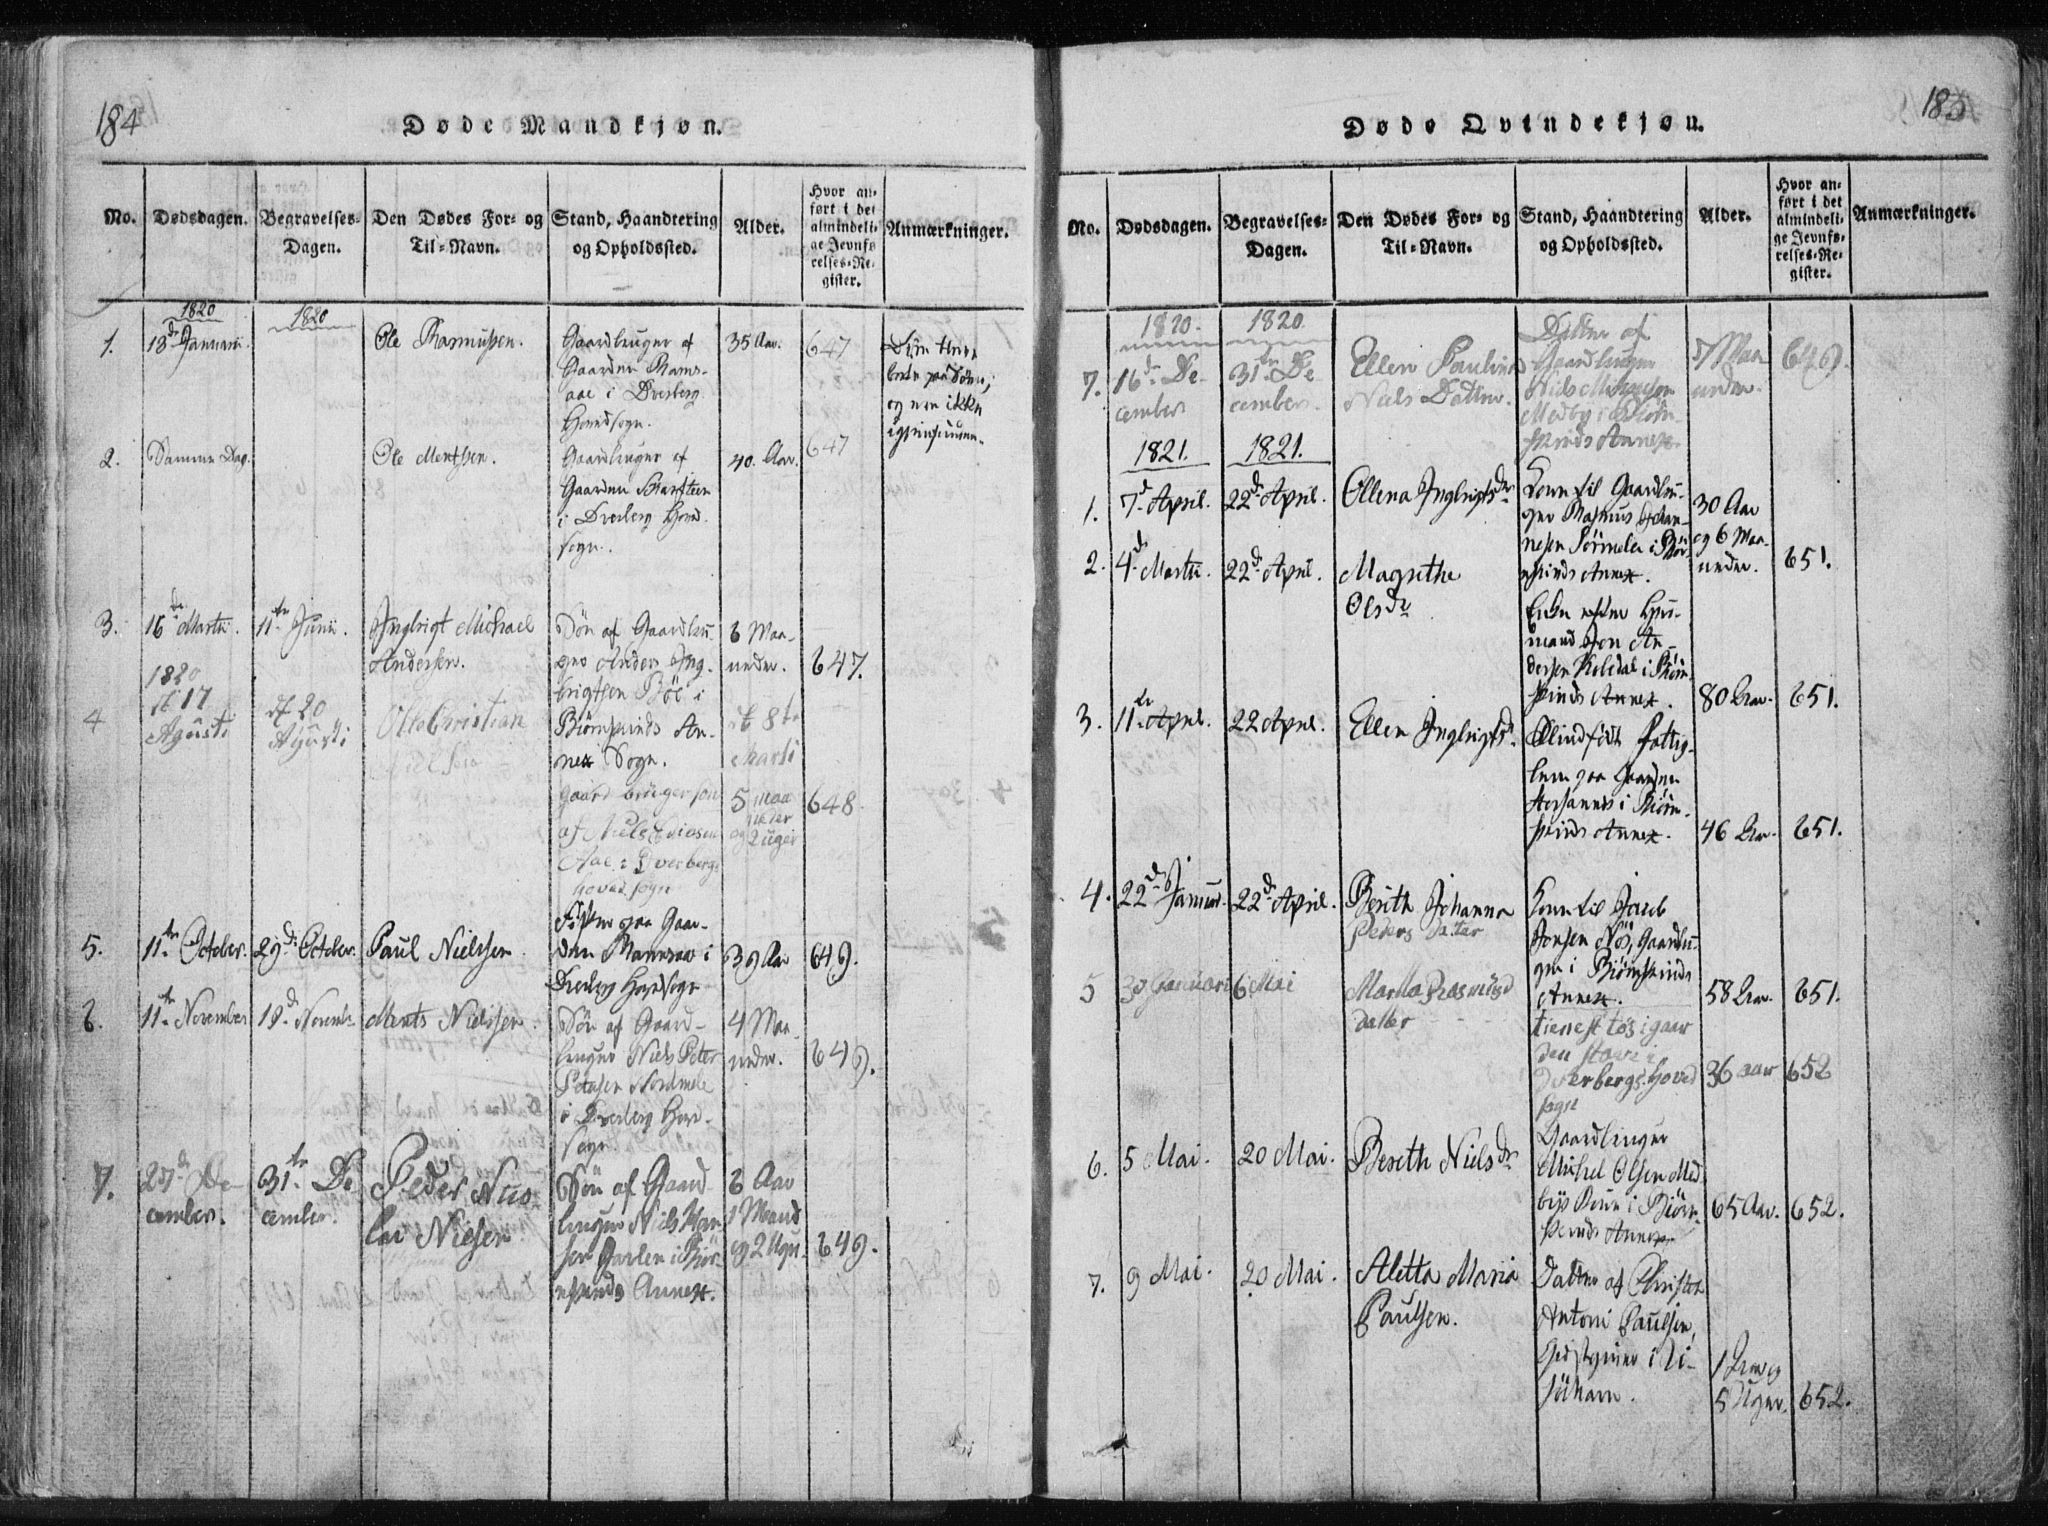 184
Døde Mandkjøn.
No.
Dødsdagen.
Begravelses-
Dagen.
Den Dødes For- og
Til-Navn.
Stand, Haandtering
og Opholdssted.
Alder.
Hvor an-
ført i det
almindeli-
ge Jevnfø-
relses-Re-
gister.
Anmærkninger.
1820
1820
1.
18de Januarii.
Ole Rasmussen.
Gaardbruger af
Gaarden Rams-
aae i Dverberg
Hovedsogn.
35 Aar.
647
Disse
og ere ikke
2.
Samme Dag.
Ole Mentsen.
Gaardbruger af
Gaarden
i Dverberg Hoved-
sogn.
40. Aar.
647
3.
16de Martii.
11te Junii.
Ingbrigt Michael
Andersen.
Søn af Gaardbru-
ger Anders Ing-
brigtsen Böe i
Biørnskinds An-
nex Sogn.
6 Maa-
neder.
647.
4
1820
d 17
Agusti
d 20
Agusti
Olle Christian
Nielsen
gaard brüger søn
af Niels
Aae i Dverbergs
hoved sogn
5 maa
neder
og 2 uger
648
5.
11te October.
29de October.
Paul Nielsen.
Fisker paa Gaar-
den Ramsaa i
Dverberg Hovedsogn
39 Aar
649.
6.
11te November
19de Novembr
Ments Nielsen.
Søn af Gaard-
bruger Niels Peter
Petersen Nordmele
i Dverberg Hoved-
sogn.
4 Maa-
neder.
649.
7.
27de De-
cember.
31te De
cember.
Peder Nico-
lai Nielsen
Søn af Gaard
bruger Niels Han
sen i Biør-
neskinds Annex.
6 Aar
1 Maaned
og 2 Uger.
649.
185
Døde Qvindekjøn.
No.
Dødsdagen.
Begravelses-
Dagen.
Den Dødes For- og
Til-Navn.
Stand, Haandtering
og Opholdssted.
Alder.
Hvor an-
ført i det
almindeli-
ge Jevnfø-
relses-Re-
gister.
Anmærkninger.
1820.
1820.
7.
16de De-
cember
31te De
cember.
Ellen Paulina
Niels Datter.
Datter af
Gaardbruger
Niels
Medby i Biørn-
skinds Annex.
7 Maa
neder.
649.
1821.
1821.
1.
7de April.
22de April.
Ollena Ingbrigtsdr
Kone til Gaardbru-
ger Rasmus Johan-
nesen i Biør-
neskinds Annex.
30 Aar
og 6 Maa-
neder.
651.
2.
4de Martii.
22de April.
Magrethe
Olsdr
Enke efter Huus-
mand Jon An-
dersen i Biørn
skinds Annex.
80 Aar.
651.
3.
11te April.
22 April.
Ellen Ingbrigtsdr.
Blindfødt Fattig-
lem paa Gaarden
i Biørn-
skinds Annex.
46 Aar.
651.
4.
22de Januar.
22de April.
Berith Johanna
Peders dater
Kone til Jacob
Jonsen Nös, Gaardbru-
ger i Biørnskinds
Annex.
58 Aar.
651.
5
30 Januari
6 Mai
Marta Rasmusd
datter
tienest tøs i gaar
den stave i
Dverbergs hoved
sogn
36 aar
652
6.
5 Mai.
20 Mai.
Bereth Nielsdr
Gaardbruger
Mikkel Olsen Med-
bys Kone i Biørn-
skinds Annex
65 Aar.
652.
7.
9 Mai.
20 Mai.
Aletta Maria
Paulsen.
Datter af Christen
Antoni Paulsen,
Giestgiver i Ri-
söehavn.
1 Aar og
5 Uger.
652.